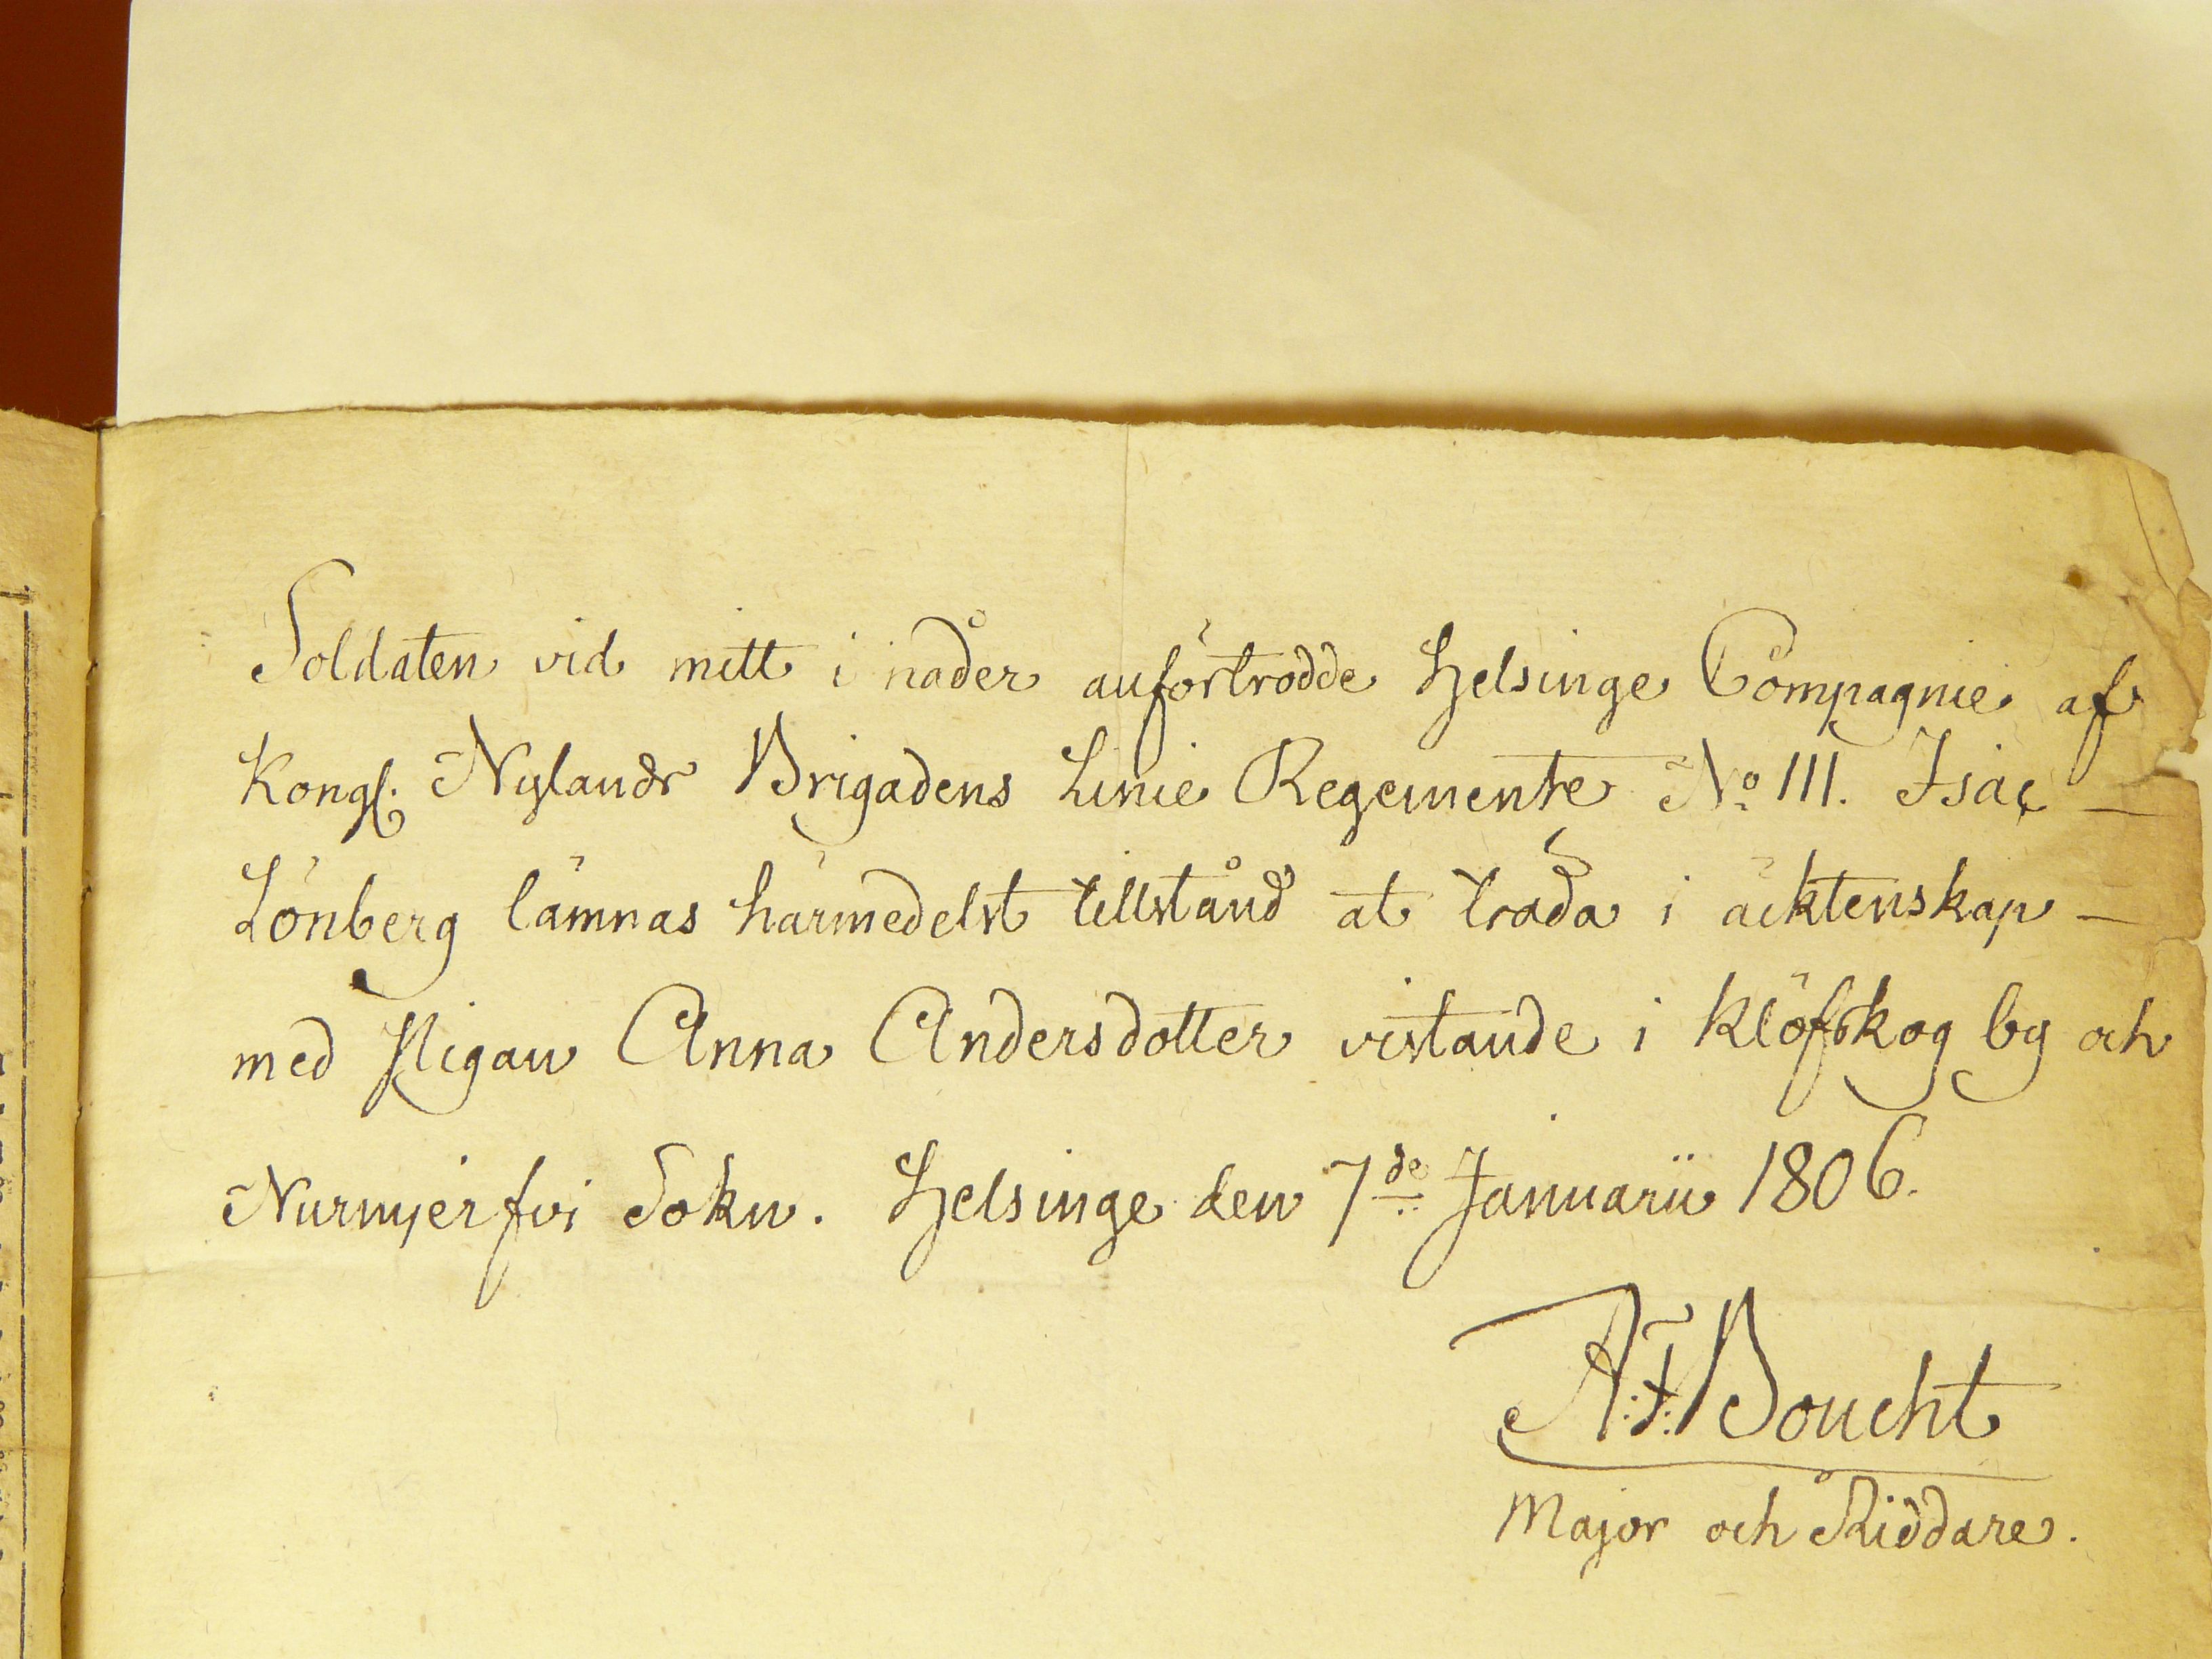 Soldaten vid mitt i nåder anförtrodde Helsinge Compagnie af
Kongl. Nylands Brigadens Linie Regemente No 111. Isac —
Lönberg lämnas härmedelst tillstånd at träda i äcktenskap —
med Pigan Anna Andersdotter vistande i Klöfskog by och
Nurmjerfvi Sokn. Helsinge den 7de Januarii 1806.
A:F: Boucht
Major och Riddare.